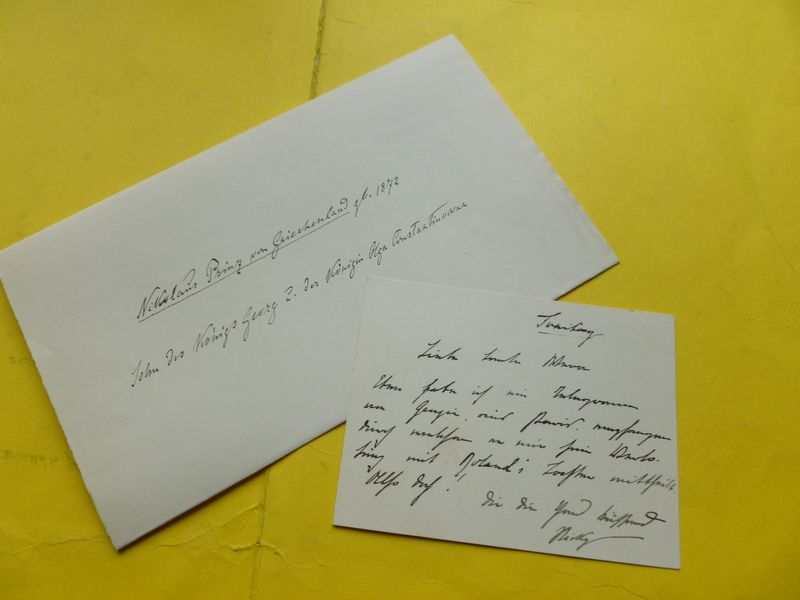 Nikolaus Prinz von Griechenland gb. 1872
Sohn des Königs Georg der Königin Olga Constantinowna
Liebe Tante Wera
Eben habe ich ein Telegramm
von Georgie, aus Paris, empfangen
durch welchem er mir seine Verlo-
bung mit Roland's Tochter mittheilt.
Also doch! Dir die Hand küssend
Nicky